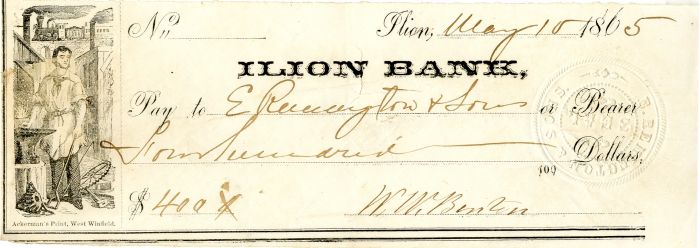 No. Ilion, May 10 1865
ILION BANK,
Pay to E Remington & Sons or Bearer
Four hundred 100 Dollars,
$ 400 W. W. Benton
Ackerman's Print, West Winfield.
E. REMINGTON & SONS